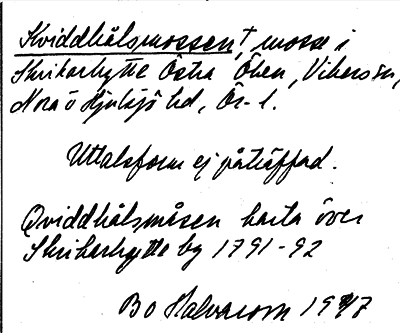 Kviddhålsmossen†, mosse i
Skrikarhytte Östra Öken, Vikers sn,
Nora o Hjulsjö hd, Ör-l.
Uttalsform ej påträffad.
Qviddhålsmåsen karta över
Skrikarhytte by 1791-92
Bo Halvarson 1947